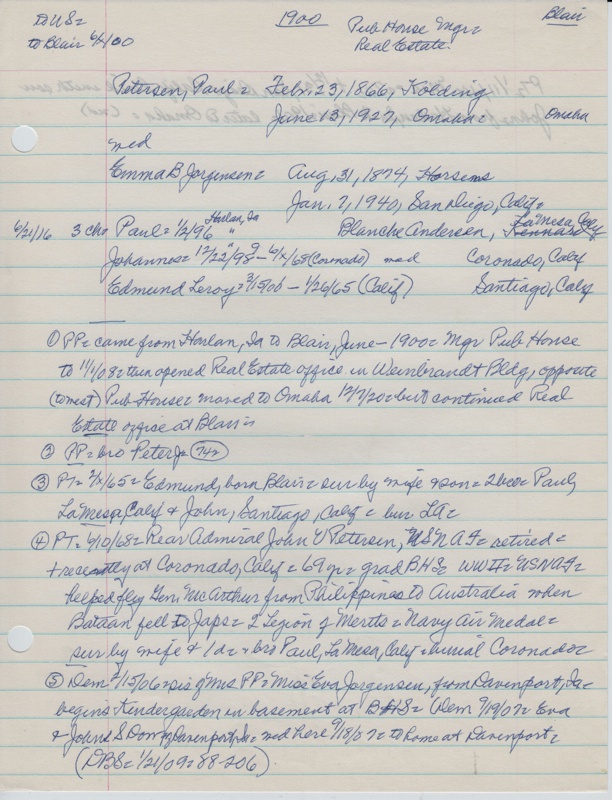 to US= 1900 Pub House Mgr= Blair
to Blair 6/x/00 Real Estate=
Petersen, Paul= Feb. 23, 1866, Kolding
June 13, 1927, Omaha= Omaha
med
Emma B Jorgensen= Aug. 31, 1874, Horsens
Jan. 7, 1940, San Diego, Calif=
6/21/16 3 ch= Paul= 1/2/96 Harlan, Ia Blanche Andersen, Kennard La Mesa, Caly
Johannes= 12/22/98 - 6/x/68 (Coronado) med Coronado, Calif
Edmund Leroy= 3/15/00 - 1/26/65 (Calif) Santiago, Caly
① PP= came from Harlan, Ia to Blair, June - 1900= Mgr Pub House
to 11/1/08= then opened Real Estate office in Weinbrandt Bldg, opposite
(to west) Pub House= moved to Omaha 12/7/20= but continued Real
Estate office at Blair=
② PP= bro Peter Jr 742
③ PT= 2/x/65= Edmund, born Blair= sur by wife & son= 2 bro= Paul,
La Mesa, Calif & John, Santiago, Calif= bur LA=
④ PT= 6/10/68= Rear Admiral John V Petersen, USNAF= retired=
+ recently at Coronado, Calif= 69 yr= grad BHS= WWII= USNAF=
helped fly Gen. McArthur from Philippines to Australia when
Bataan fell to Japs= 2 Legion of Merits= Navy Air Medal=
sur by wife & 1 da= & bro Paul, La Mesa, Calif= burial Coronado=
⑤ Dem /15/06= sis of Mrs PP= Miss Eva Jorgensen, from Davenport, Ia=
begins Kindergarden in basement at BHS= (Dem 9/19/07= Eva
& John S Dom of Davenport, Ia= med here 9/18/07= to home at Davenport=
(DBS= 1/21/09= 88-206)